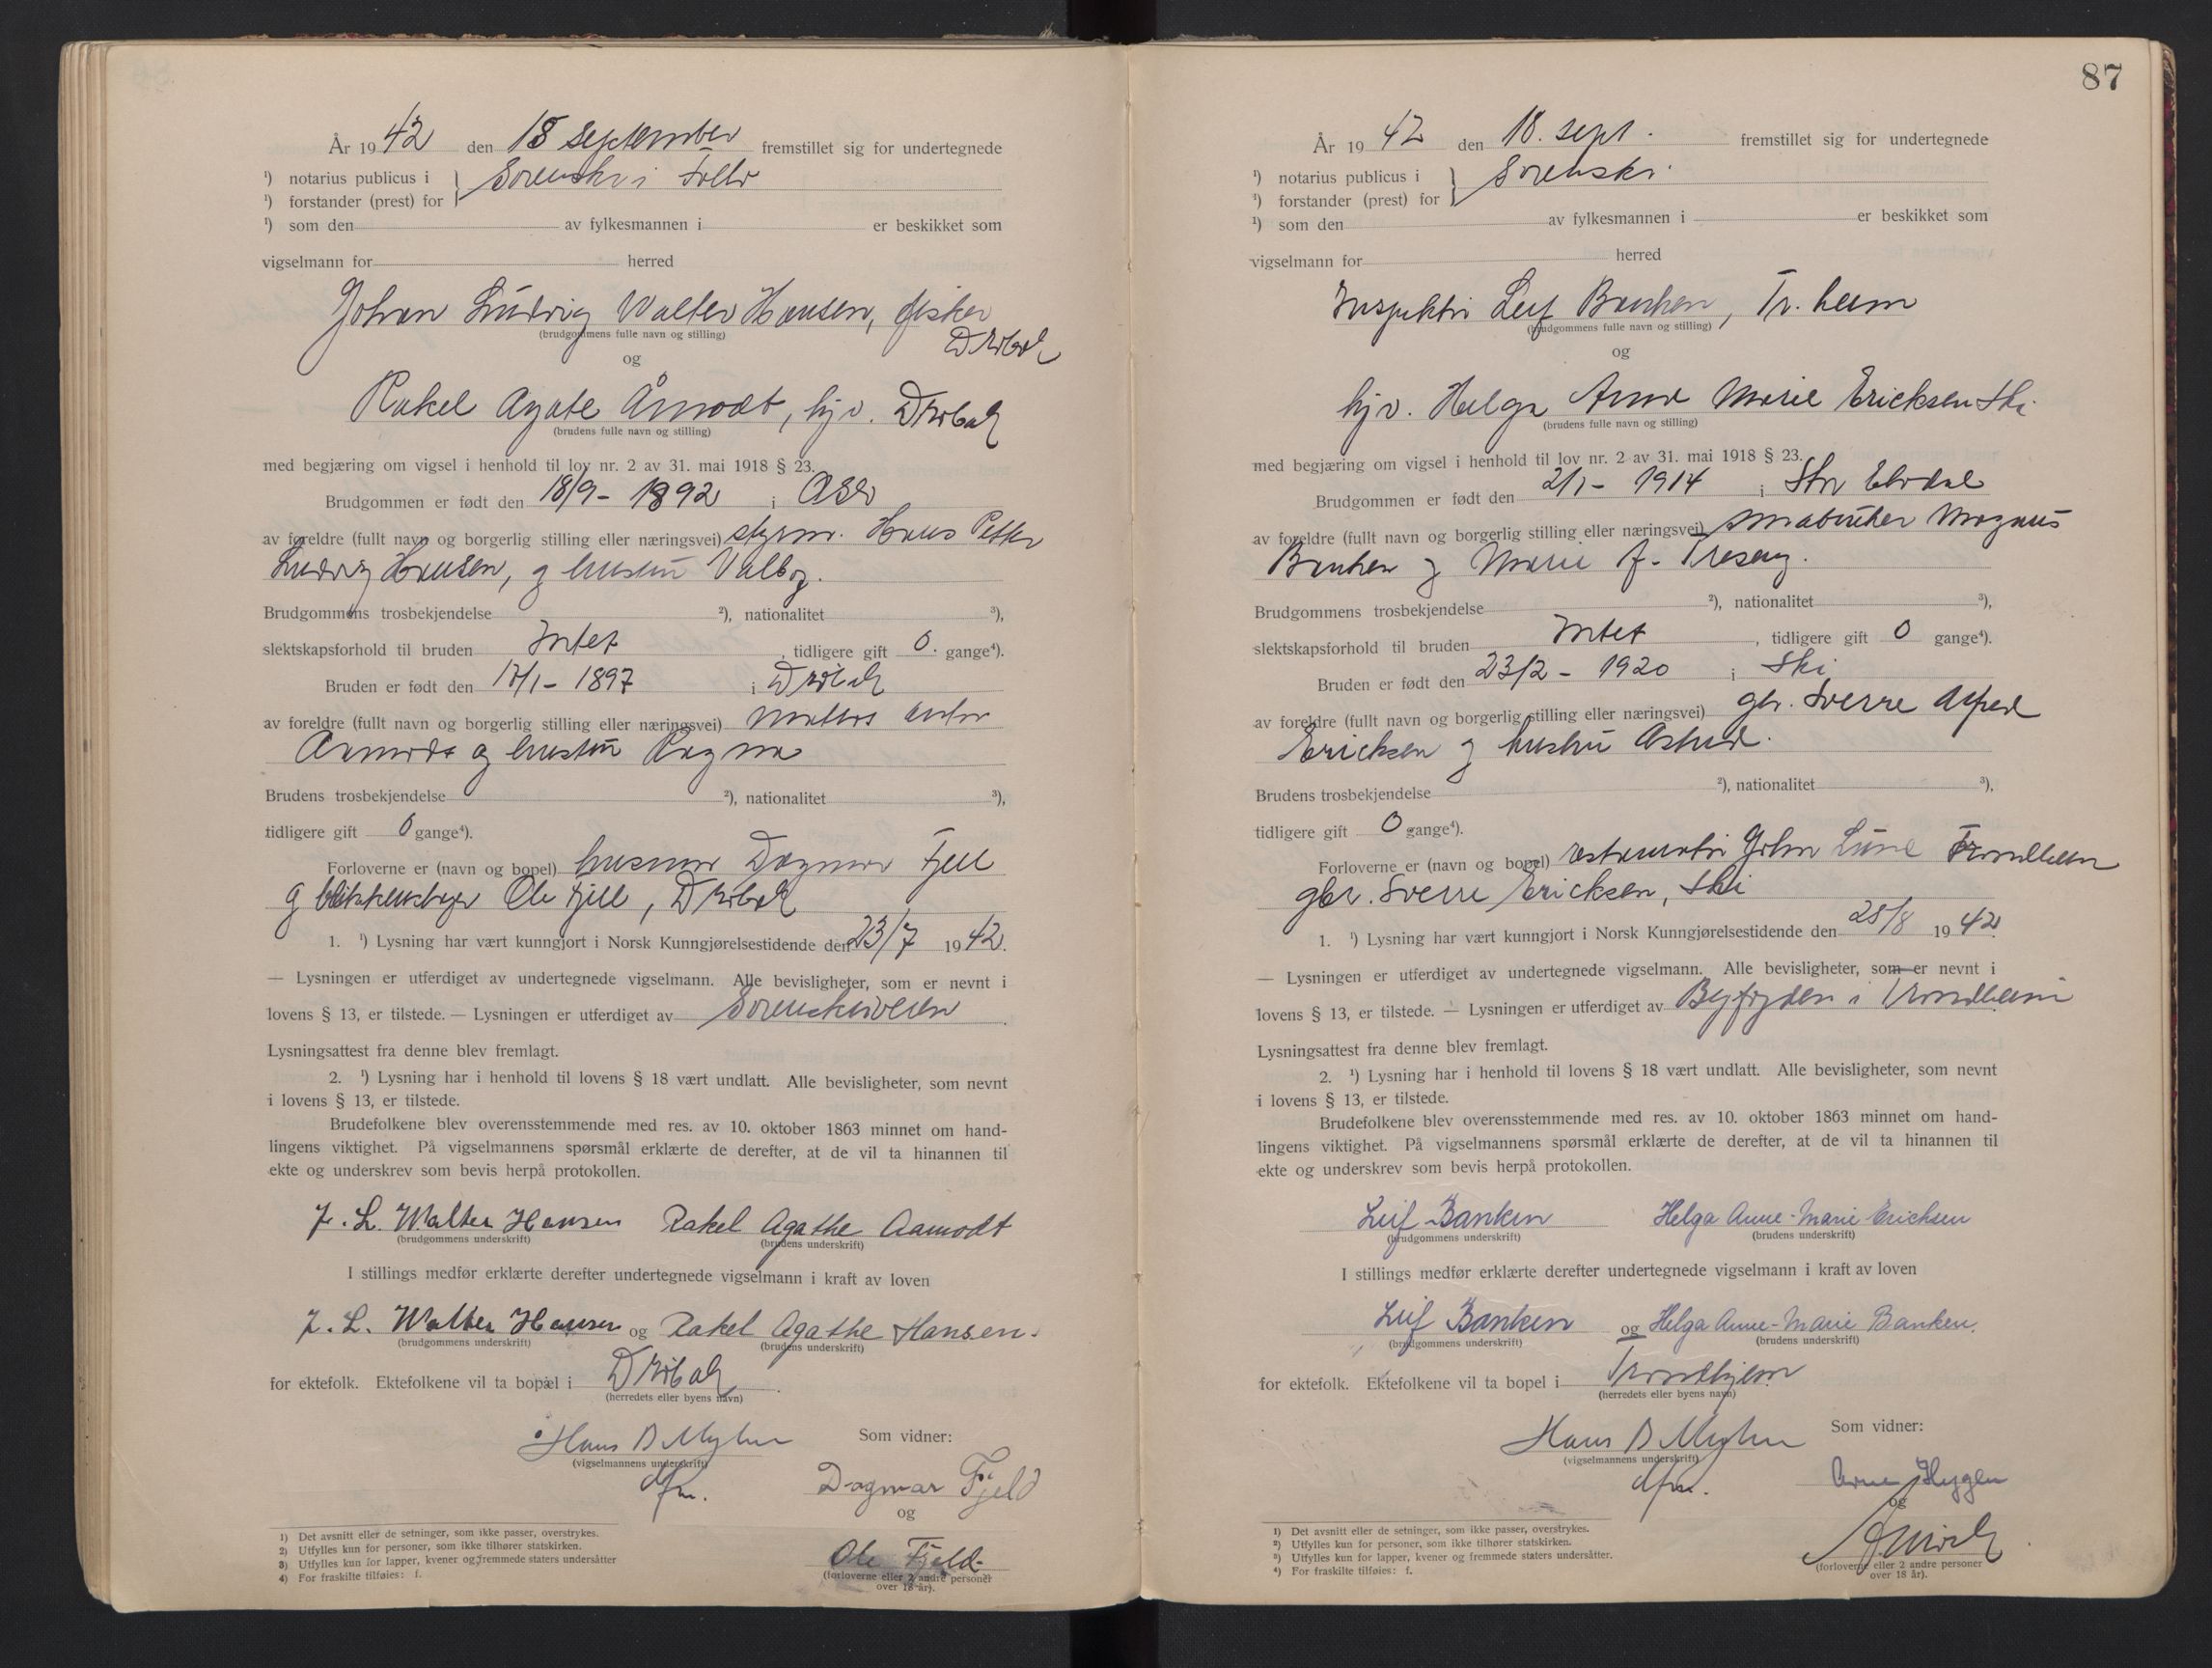 År 1942 den 18 september fremstillet sig for undertegnede
¹) notarius publicus i } Sorenskr i Follo
¹) forstander (prest) for
¹) som den av fylkesmannen i er beskikket som
vigselmann for herred
Johan Ludvig Walter Hansen, fisker
(brudgommens fulle navn og stilling)
Drøbak
og
Rakel Agate Åmodt, hjv. Drøbak
(brudens fulle navn og stilling)
med begjæring om vigsel i henhold til lov nr. 2 av 31. mai 1918 § 23.
Brudgommen er født den 18/9 - 1892 i Oslo
av foreldre (fullt navn og borgerlig stilling eller næringsvei) styrm. Hans Petter
Ludvig Hansen, og hustru Valborg.
Brudgommens trosbekjendelse ²), nationalitet ³),
slektskapsforhold til bruden Intet, tidligere gift 0. gange⁴).
Bruden er født den 17/1 - 1897 i Drøbak
av foreldre (fullt navn og borgerlig stilling eller næringsvei) Anton
Aamodt og hustru Ragna
Brudens trosbekjendelse ²), nationalitet ³),
tidligere gift 0 gange⁴).
Forloverne er (navn og bopel) husmor Dagmar Fjell
og blikkenslager Ole Fjell, Drøbak
1. ¹) Lysning har vært kunngjort i Norsk Kunngjørelsestidende den 23/7 1942.
— Lysningen er utferdiget av undertegnede vigselmann. Alle bevisligheter, som er nevnt i
lovens § 13, er tilstede. — Lysningen er utferdiget av Sorenskriveren
Lysningsattest fra denne blev fremlagt.
2. ¹) Lysning har i henhold til lovens § 18 vært undlatt. Alle bevisligheter, som nevnt
i lovens § 13, er tilstede.
Brudefolkene blev overensstemmende med res. av 10. oktober 1863 minnet om hand-
lingens viktighet. På vigselmannens spørsmål erklærte de derefter, at de vil ta hinannen til
ekte og underskrev som bevis herpå protokollen.
J. L. Walter Hansen Rakel Agathe Aamodt
(brudgommens underskrift) (brudens underskrift)
I stillings medfør erklærte derefter undertegnede vigselmann i kraft av loven
J. L. Walter Hansen og Rakel Agathe Hansen.
(brudgommens underskrift) (brudens underskrift)
for ektefolk. Ektefolkene vil ta bopæl i Drøbak
(herredets eller byens navn)
Hans B Myhre Som vidner:
(vigselmannens underskrift)
Dagmar Fjeld
og
Ole Fjeld
(forloverne eller 2 andre personer
over 18 år).
1) Det avsnitt eller de setninger, som ikke passer, overstrykes.
2) Utfylles kun for personer, som ikke tilhører statskirken.
3) Utfylles kun for lapper, kvener og fremmede staters undersåtter
4) For fraskilte tilføies: f.
87
År 1942 den 18. sept. fremstillet sig for undertegnede
¹) notarius publicus i } Sorenskr.
¹) forstander (prest) for
¹) som den av fylkesmannen i er beskikket som
vigselmann for herred
Inspektør Leif Banken, Tr.heim
(brudgommens fulle navn og stilling)
og
hjv. Helga Anne Marie Ericksen Ski
(brudens fulle navn og stilling)
med begjæring om vigsel i henhold til lov nr. 2 av 31. mai 1918 § 23.
Brudgommen er født den 2/1 - 1914 i Elvdal
av foreldre (fullt navn og borgerlig stilling eller næringsvei) småbruker Magnus
Banken og Marie f.
Brudgommens trosbekjendelse ²), nationalitet ³),
slektskapsforhold til bruden Intet, tidligere gift 0 gange⁴).
Bruden er født den 23/2 - 1920 i Ski
av foreldre (fullt navn og borgerlig stilling eller næringsvei) gbr. Sverre Alfred
Ericksen og hustru Astrid.
Brudens trosbekjendelse ²), nationalitet ³),
tidligere gift 0 gange⁴).
Forloverne er (navn og bopel) restauratør John Trondheim
gbr. Sverre Ericksen, Ski
1. ¹) Lysning har vært kunngjort i Norsk Kunngjørelsestidende den 28/8 1942
— Lysningen er utferdiget av undertegnede vigselmann. Alle bevisligheter, som er nevnt i
lovens § 13, er tilstede. — Lysningen er utferdiget av Byfogden i Trondheim
Lysningsattest fra denne blev fremlagt.
2. ¹) Lysning har i henhold til lovens § 18 vært undlatt. Alle bevisligheter, som nevnt
i lovens § 13, er tilstede.
Brudefolkene blev overensstemmende med res. av 10. oktober 1863 minnet om hand-
lingens viktighet. På vigselmannens spørsmål erklærte de derefter, at de vil ta hinannen til
ekte og underskrev som bevis herpå protokollen.
Leif Banken Helga Anne-Marie Ericksen
(brudgommens underskrift) (brudens underskrift)
I stillings medfør erklærte derefter undertegnede vigselmann i kraft av loven
Leif Banken og Helga Anne-Marie Banken.
(brudgommens underskrift) (brudens underskrift)
for ektefolk. Ektefolkene vil ta bopel i Trondhjem
(herredets eller byens navn)
Hans B Myhre Som vidner:
(vigselmannens underskrift)
Arne Hyggen
og
(forloverne eller 2 andre personer
over 18 år).
¹) Det avsnitt eller de setninger, som ikke passer, overstrykes.
²) Utfylles kun for personer, som ikke tilhører statskirken.
³) Utfylles kun for lapper, kvener og fremmede staters undersåtter.
⁴) For fraskilte tilføies: f.